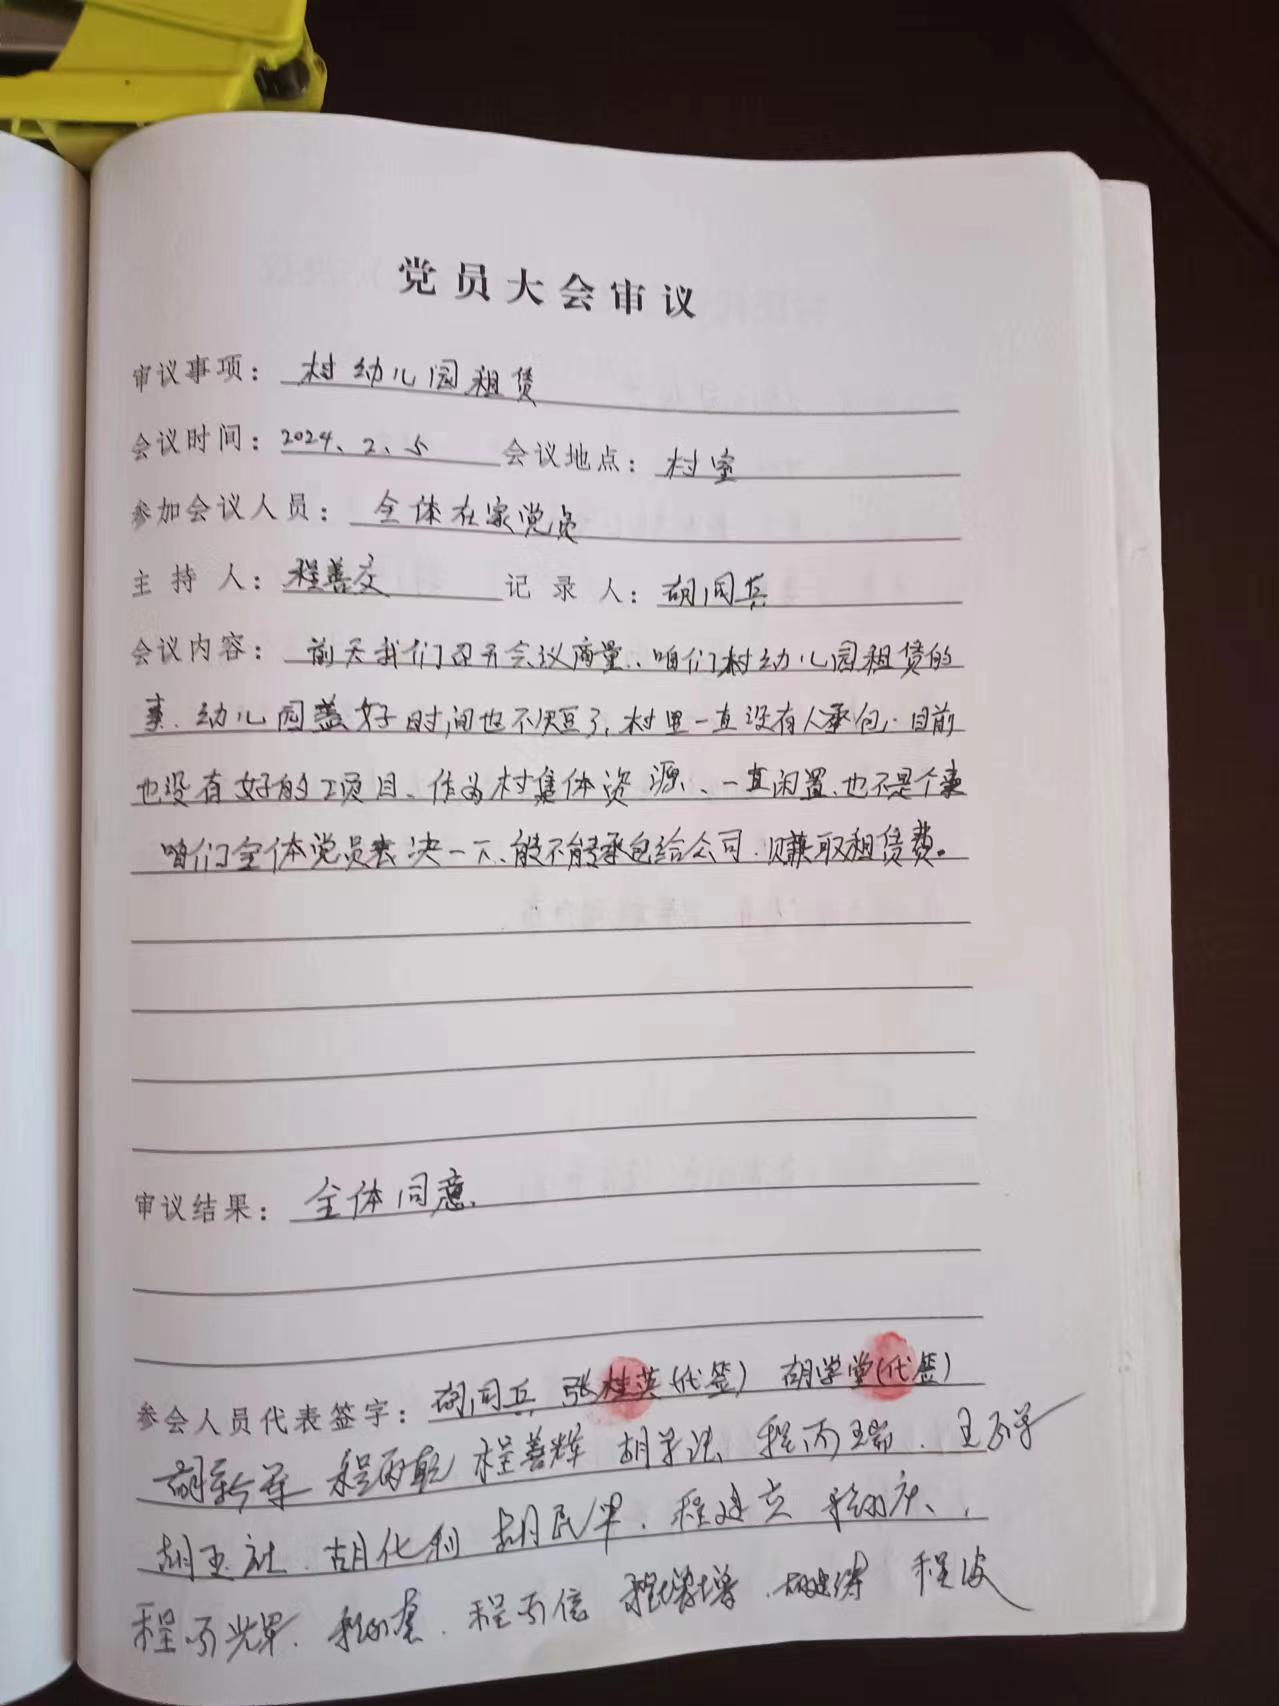 党员大会审议
审议事项：村幼儿园租赁
会议时间：2024、2、5 会议地点：村室
参加会议人员：全体在家党员
主持人：程善交 记录人：胡同兵
会议内容：前天我们召开会议商量、咱们村幼儿园租赁的
事、幼儿园盖好时间也不短了,村里一直没有人承包、目前
也没有好的工项目、作为村集体资源、一直闲置、也不是个事
咱们全体党员表决一下、能不能承包给公司、赚取租赁费。
审议结果：全体同意、
参会人员代表签字：胡同兵 张桂英(代签) 胡学堂(代签)
程善辉 程丙瑞、
胡玉社、胡化利 胡民军、程建立
程丙光 程丙信 程波